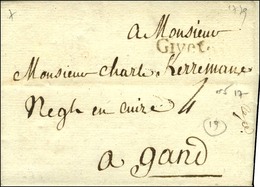 a Monsieur
Givet
Monsieur Charle Kerremans
Negt en cuire 4
19
a gand